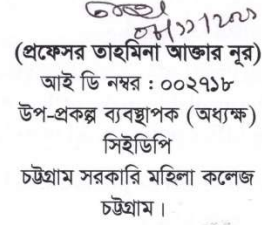 (প্রফেসর তাহমিনা আক্তার নূর)
আই ডি নম্বর : ০০২৭১৮
উপ-প্রকল্প ব্যবস্থাপক (অধ্যক্ষ)
সিইডিপি
চট্টগ্রাম সরকারি মহিলা কলেজ
চট্টগ্রাম।